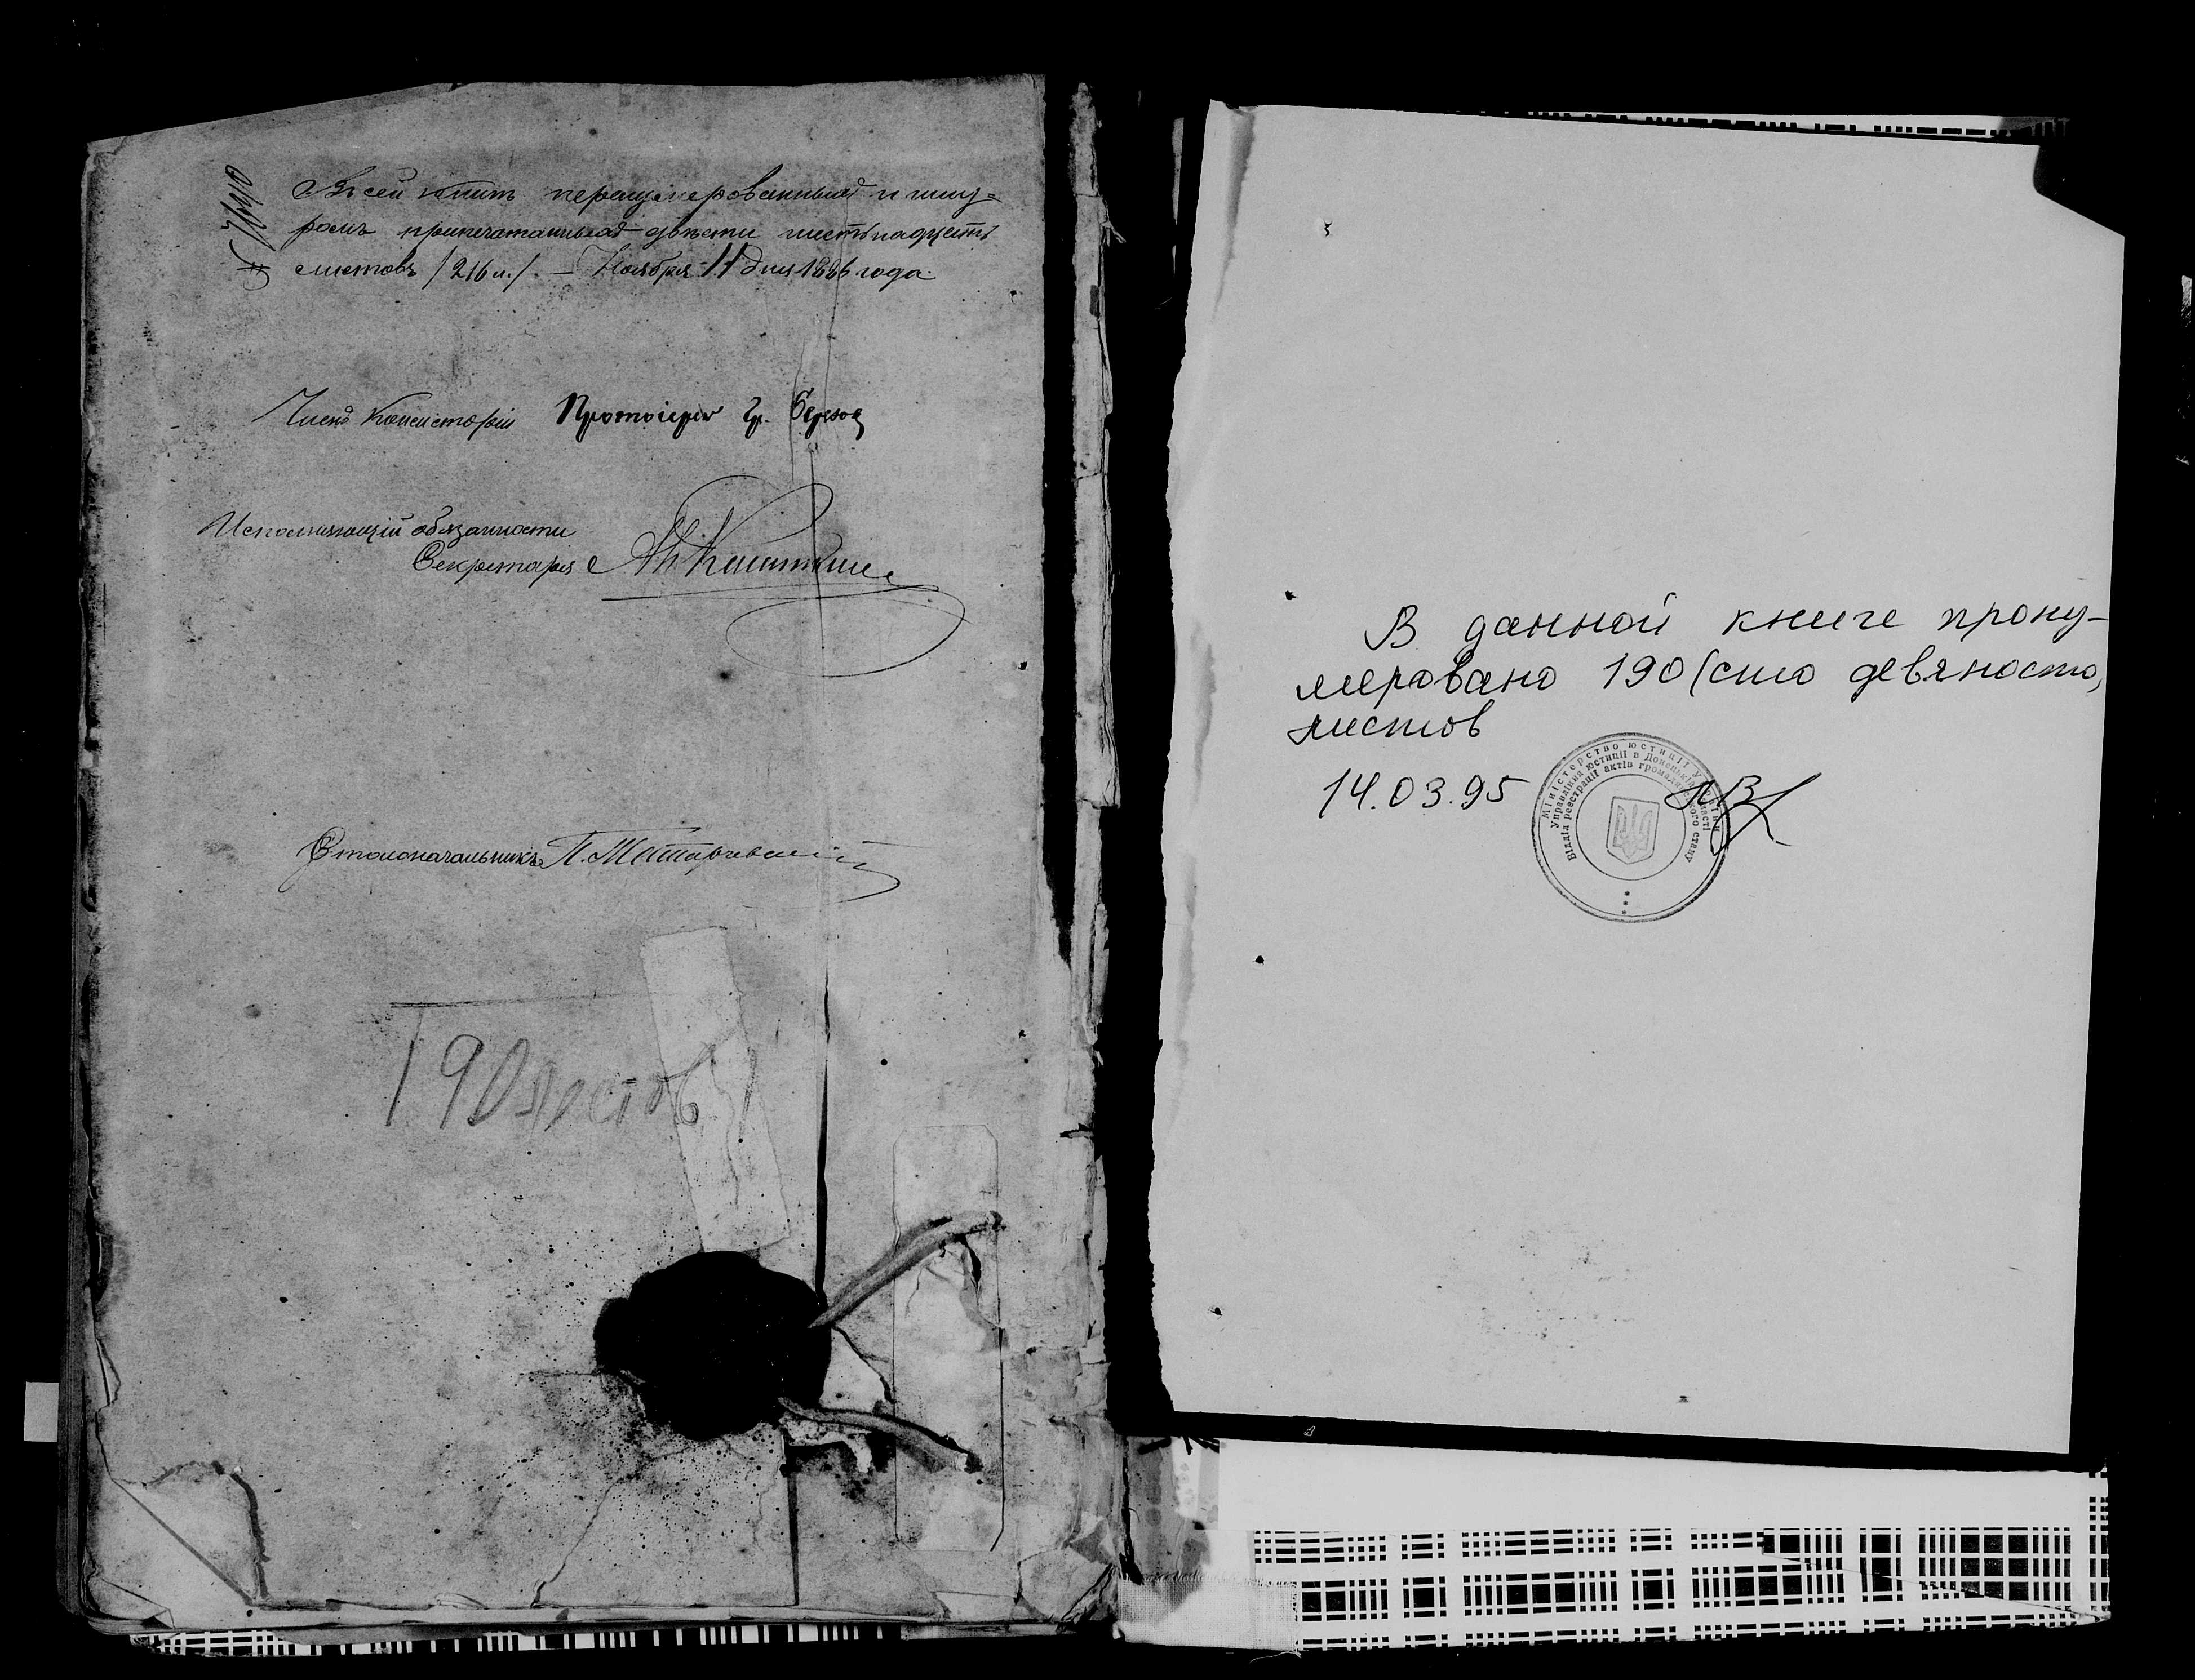 Въ сей книгѣ перенумерованныхъ и шну-
ромъ припечатанныхъ двѣсти шестьнадцать
листовъ /216 л./. – Ноября 11 дня 1886 года.
Членъ Консисторіи Протоіерей Гр.
Исполняющій обязанности
Секретаря
Столоначальникъ П.
190 листов
В данной книге прону-
меровано 190 (сто девяносто)
листов
14.03.95
Міністерство юстиції України
Управління юстиції в Донецькій області
Відділ реєстрації актів громадянського стану